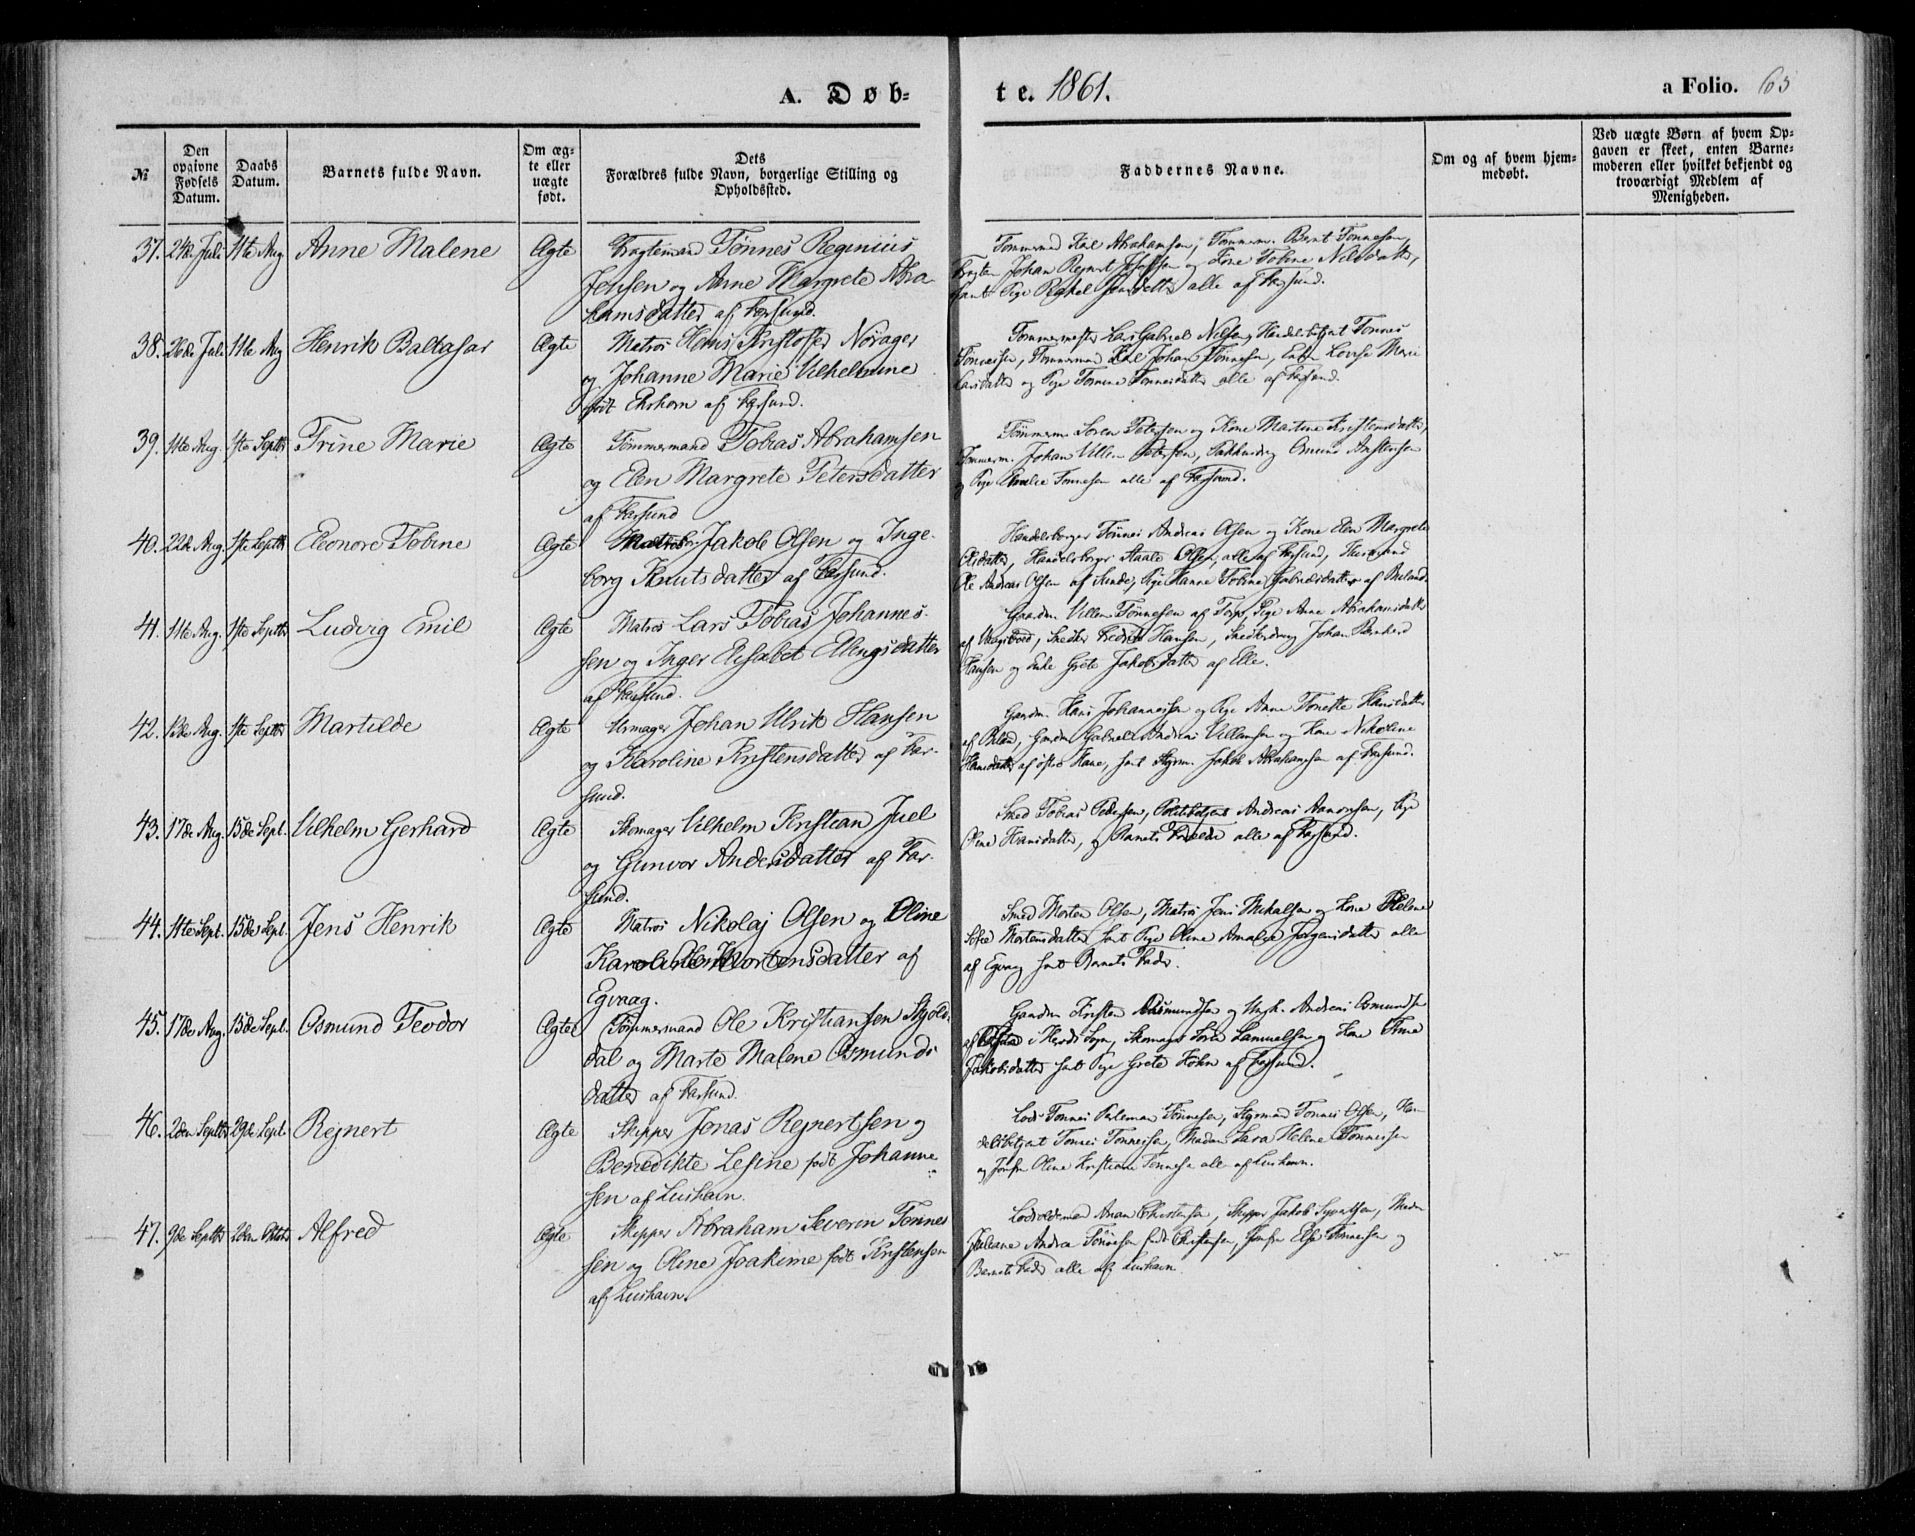 A. Døb-
te. 1861.
a Folio. 63
№
Den opgivne Fødsels Datum.
Daabs Datum.
Barnets fulde Navn.
Om ægte eller uægte født.
Dets Forældres fulde Navn, borgerlige Stilling og Opholdssted.
Faddernes Navne.
Om og af hvem hjemmedøbt.
Ved uægte Børn af hvem Opgaven er skeet, enten Barnemoderen eller hvilket bekjendt og troværdigt Medlem af Menigheden.
37. 24de Juli 11te Aug Anne Malene Ægte Fragtemand Tønnes Reginius
Jensen og Anne Margrete Abra-
hamsdatter af Farsund.
Tømmermd Karl Abrahamsen, Tømmerm. Bernt Tønnesen,
Johan Rejnert Josefsen og Kone Tobine Nilsdatter,
samt Pige Rakel Jensdatter alle af Farsund.
38. 26de Juli 11te Aug Henrik Baltasar Ægte Matros Hans Kristofer Norager
og Johanne Marie Vilhelmine
født Ekhorn af Farsund.
Tømmermester Lars Gabriel Nilsen, Handelsbetjent Tønnes
Tønnessen, Tømmermand Karl Johan Tønnesen, Enke Lovise Marie
Larsdatter og Pige Tomine Tønnesdatter alle af Farsund.
39. 11te Aug. 1ste Septbr Trine Marie Ægte Tømmermand Tobias Abrahamsen
og Elen Margrete Petersdatter
af Farsund
Tømmerm. Søren Petersen og Kone Martine Kristensdatter,
Tømmerm. Johan Villem Petersen, Osmund Anstensen
og Pige Emelie Tønnesen alle af Farsund.
40. 22de Aug. 1ste Septbr Eleonore Tobine Ægte Jakob Olsen og Inge-
borg Knutsdatter af Farsund.
Handelsborger Tønnes Andreas Olsen og Kone Elen Margrete
Olsdatter, Handelsborger Staale Olsen, alle af Farsund, Husmand
Ole Andreas Olsen af Sunde, Pige Hanne Tobine Gabrielsdatter af
41. 11te Aug. 1ste Septbr Ludvig Emil Ægte Matros Lars Tobias Johannes-
sen og Inger Elisabet Ellingsdatter
af Farsund.
Gaardm. Villem Tønnesen af Torp, Pige Anne Abrahamsdatter
af Snedker Fredrik Hansen, Snedkerdreng Johan Bernhard
Hansen og Enke Grete Jakobsdatter af Elle.
42. 13de Aug. 1ste Septbr Martilde Ægte Urmager Johan Ulrik Hansen
og Karoline Kristensdatter af Far-
sund.
Gaardm. Hans Johannessen og Pige Anne Tonette Hansdatter
af Gaardm Gabriel Andreas Villumsen og Kone Nikoline
Hansdatter af østre Hane, samt Styrm. Jakob Abrahamsen af Farsund.
43. 17de Aug. 15de Sept. Vilhelm Gerhard Ægte Skomager Vilhelm Kristian Juel
og Gunvor Andersdatter af Far-
sund.
Smed Tobias Pedersen, Politibetjent Andreas Aanonsen, Pige
Oline Hansdatter, og Barnets Forældre alle af Farsund.
44. 11te Sept. 15de Sept. Jens Henrik Ægte Matros Nikolaj Olsen og Oline
Karoline Mortensdatter af
Egvaag.
Smed Morten Olsen, Matros Jens Mikalsen og Kone Helene
Sofie Mortensdatter samt Pige Oline Amalie Jørgensdatter alle
af Egvaag samt Barnets Fader.
45. 17de Aug. 15de Sept. Osmund Teodor Ægte Tømmermand Ole Kristiansen Skjolde-
dal og Marte Malene Osmunds
datter af Farsund.
Gaardm Kristen Osmundsen og Ungk. Andreas Osmundsen
af i Herred Sogn, Skomager Søren Samuelsen og Kone Trine
Jakobsdatter samt Pige Grete Hohn af Farsund.
46. 2den Septbr 29de Sept. Rejnert Ægte Skipper Jonas Rejnertsen og
Benedikte Lesine født Johanne-
sen af Lushavn.
Lods Tønnes Perleman Tønnesen, Styrmand Tønnes Olsen, Han-
delsbetjent Tønnes Tønnessen, Madam Sara Helene Tønnessen
og Jomfru Oline Kristiane Tønnesen alle af Lushavn.
47. 9de Septbr 2den Oktbr Alfred Ægte Skipper Abraham Severin Tønnes
sen og Oline Joakime født Kristensen
af Lushavn.
Lodsoldermand Anan Christensen, Skipper Jakob Syvertsen, Madam
Juliane Andrea Tønnesen født Christensen, Jomfru Elise Tønnesen og
Barnets Fader alle af Lushavn.